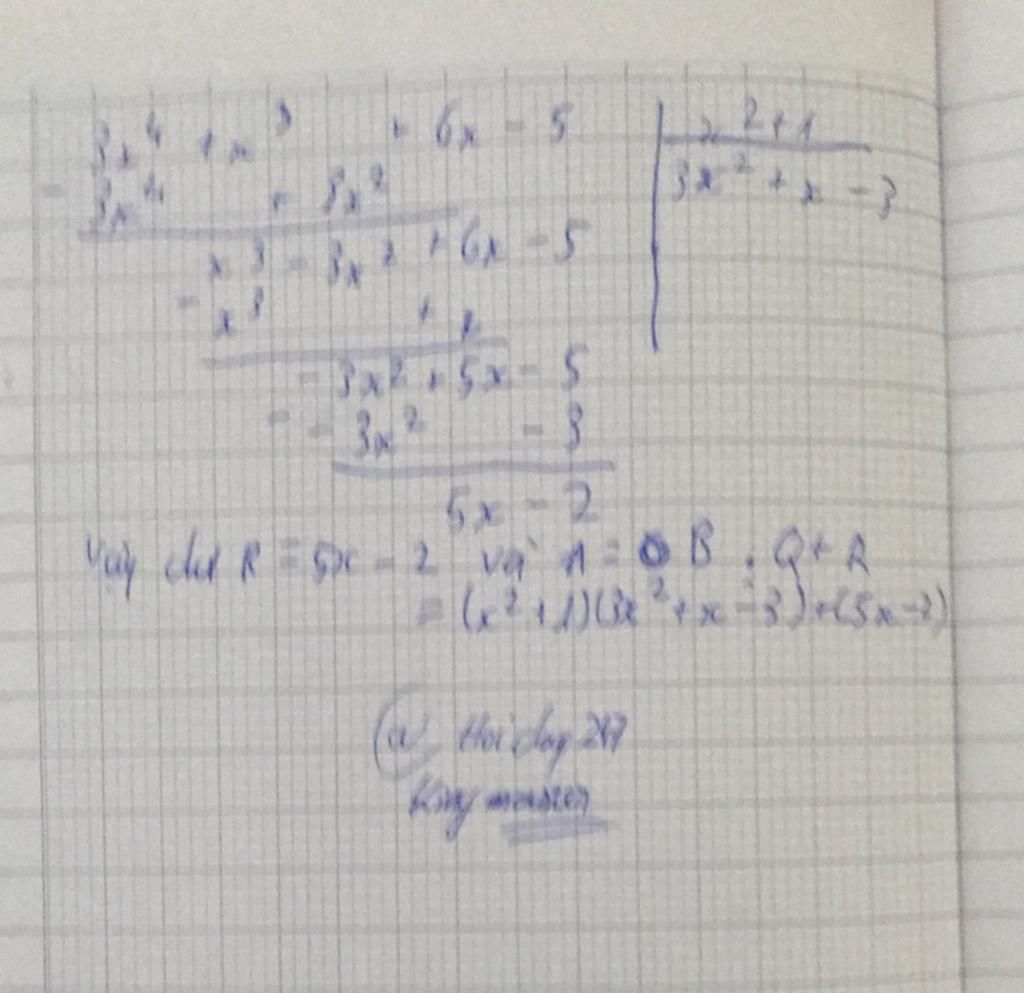 3x⁴ + x³ + 6x - 5 | x² + 1
- 3x⁴ + 3x² | 3x² + x - 3
x³ - 3x² + 6x - 5
- x³ + x
- 3x² + 5x - 5
- - 3x² - 3
5x - 2
Vậy dư R = 5x - 2 và A = B . Q + R
= (x² + 1)(3x² + x - 3) + (5x - 2)
@ Hoidap247